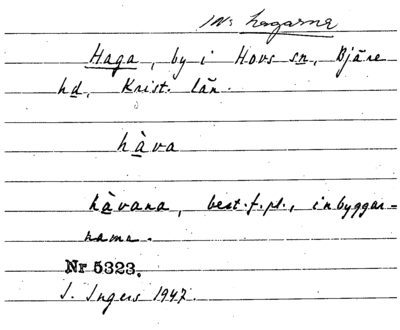 IN: hagarna
Haga, by i Hovs sn, Bjäre
hd, Krist. län.
hàva
hàvana, best. f. pl., inbyggar-
namn.
Nr 5323.
I. Ingers 1947.